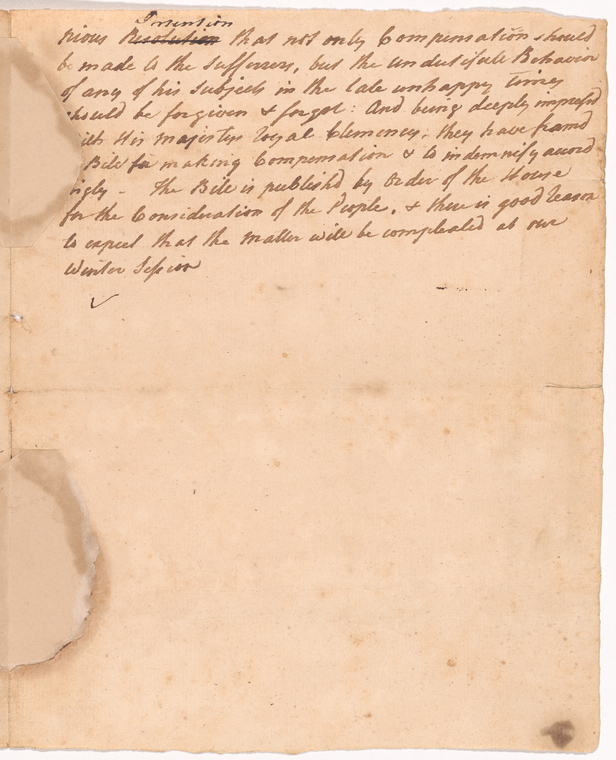 Intention
rious Resolution that not only Compensation should
be made to the sufferers, but the undutifull Behavior
of any of his Subjects in the late unhappy times
should be forgiven & forgot: And being deeply impressd
with His Majestys Royal Clemency, they have framd
Bill for making Compensation & to indemnify accord
ingly - The Bill is publishd by Order of the House
for the Consideration of the People, & there is good reason
to expect that the matter will be compleated at our
Winter Session